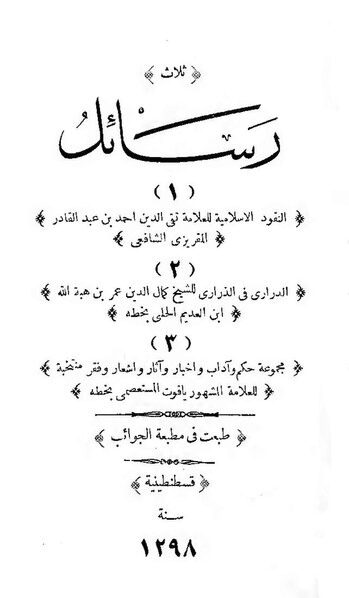 ﴿ ثلاث ﴾
رَسَائِلُ
(١)
﴿ النقود الاسلامية للعلامة تقى الدين احمد بن عبد القادر ﴾
﴿ المقريزى الشافعى ﴾
(٢)
﴿ الدرارى فى الذرارى للشيخ كمال الدين عمر بن هبة الله ﴾
﴿ ابن العديم الحلبى بخطه ﴾
(٣)
﴿ مجموعة حكم وآداب واخبار وآثار واشعار وفقر منتخبة ﴾
﴿ للعلامة المشهور ياقوت المستعصمى بخطه ﴾
﴿ طبعت فى مطبعة الجوائب ﴾
﴿ قسطنطينية ﴾
سنة
١٢٩٨